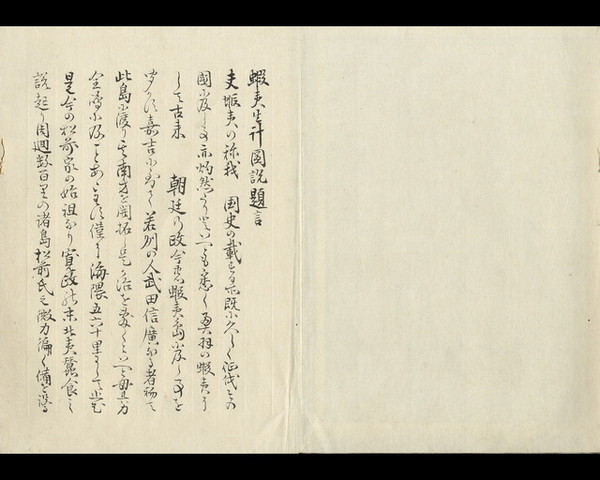 蝦夷生計図説題言
夫蝦夷の称我 国史の載する所既に久しく征伐
国に及 事亦灼然たりといへとも悉く奥羽の蝦夷に
して古来 朝廷の政令 蝦夷島に及し事を
聞かす嘉吉に至りて若州の人武田信廣なる者初て
此島に渡り其南方を開拓し是か治を といへとも其力
全島に及ことあたはす僅に海隈五六十里にして止む
是今の松前家の始祖なり寛政の末北夷蚕食之
説起り周廻数百里の諸島松前氏之微力遍く備を設る